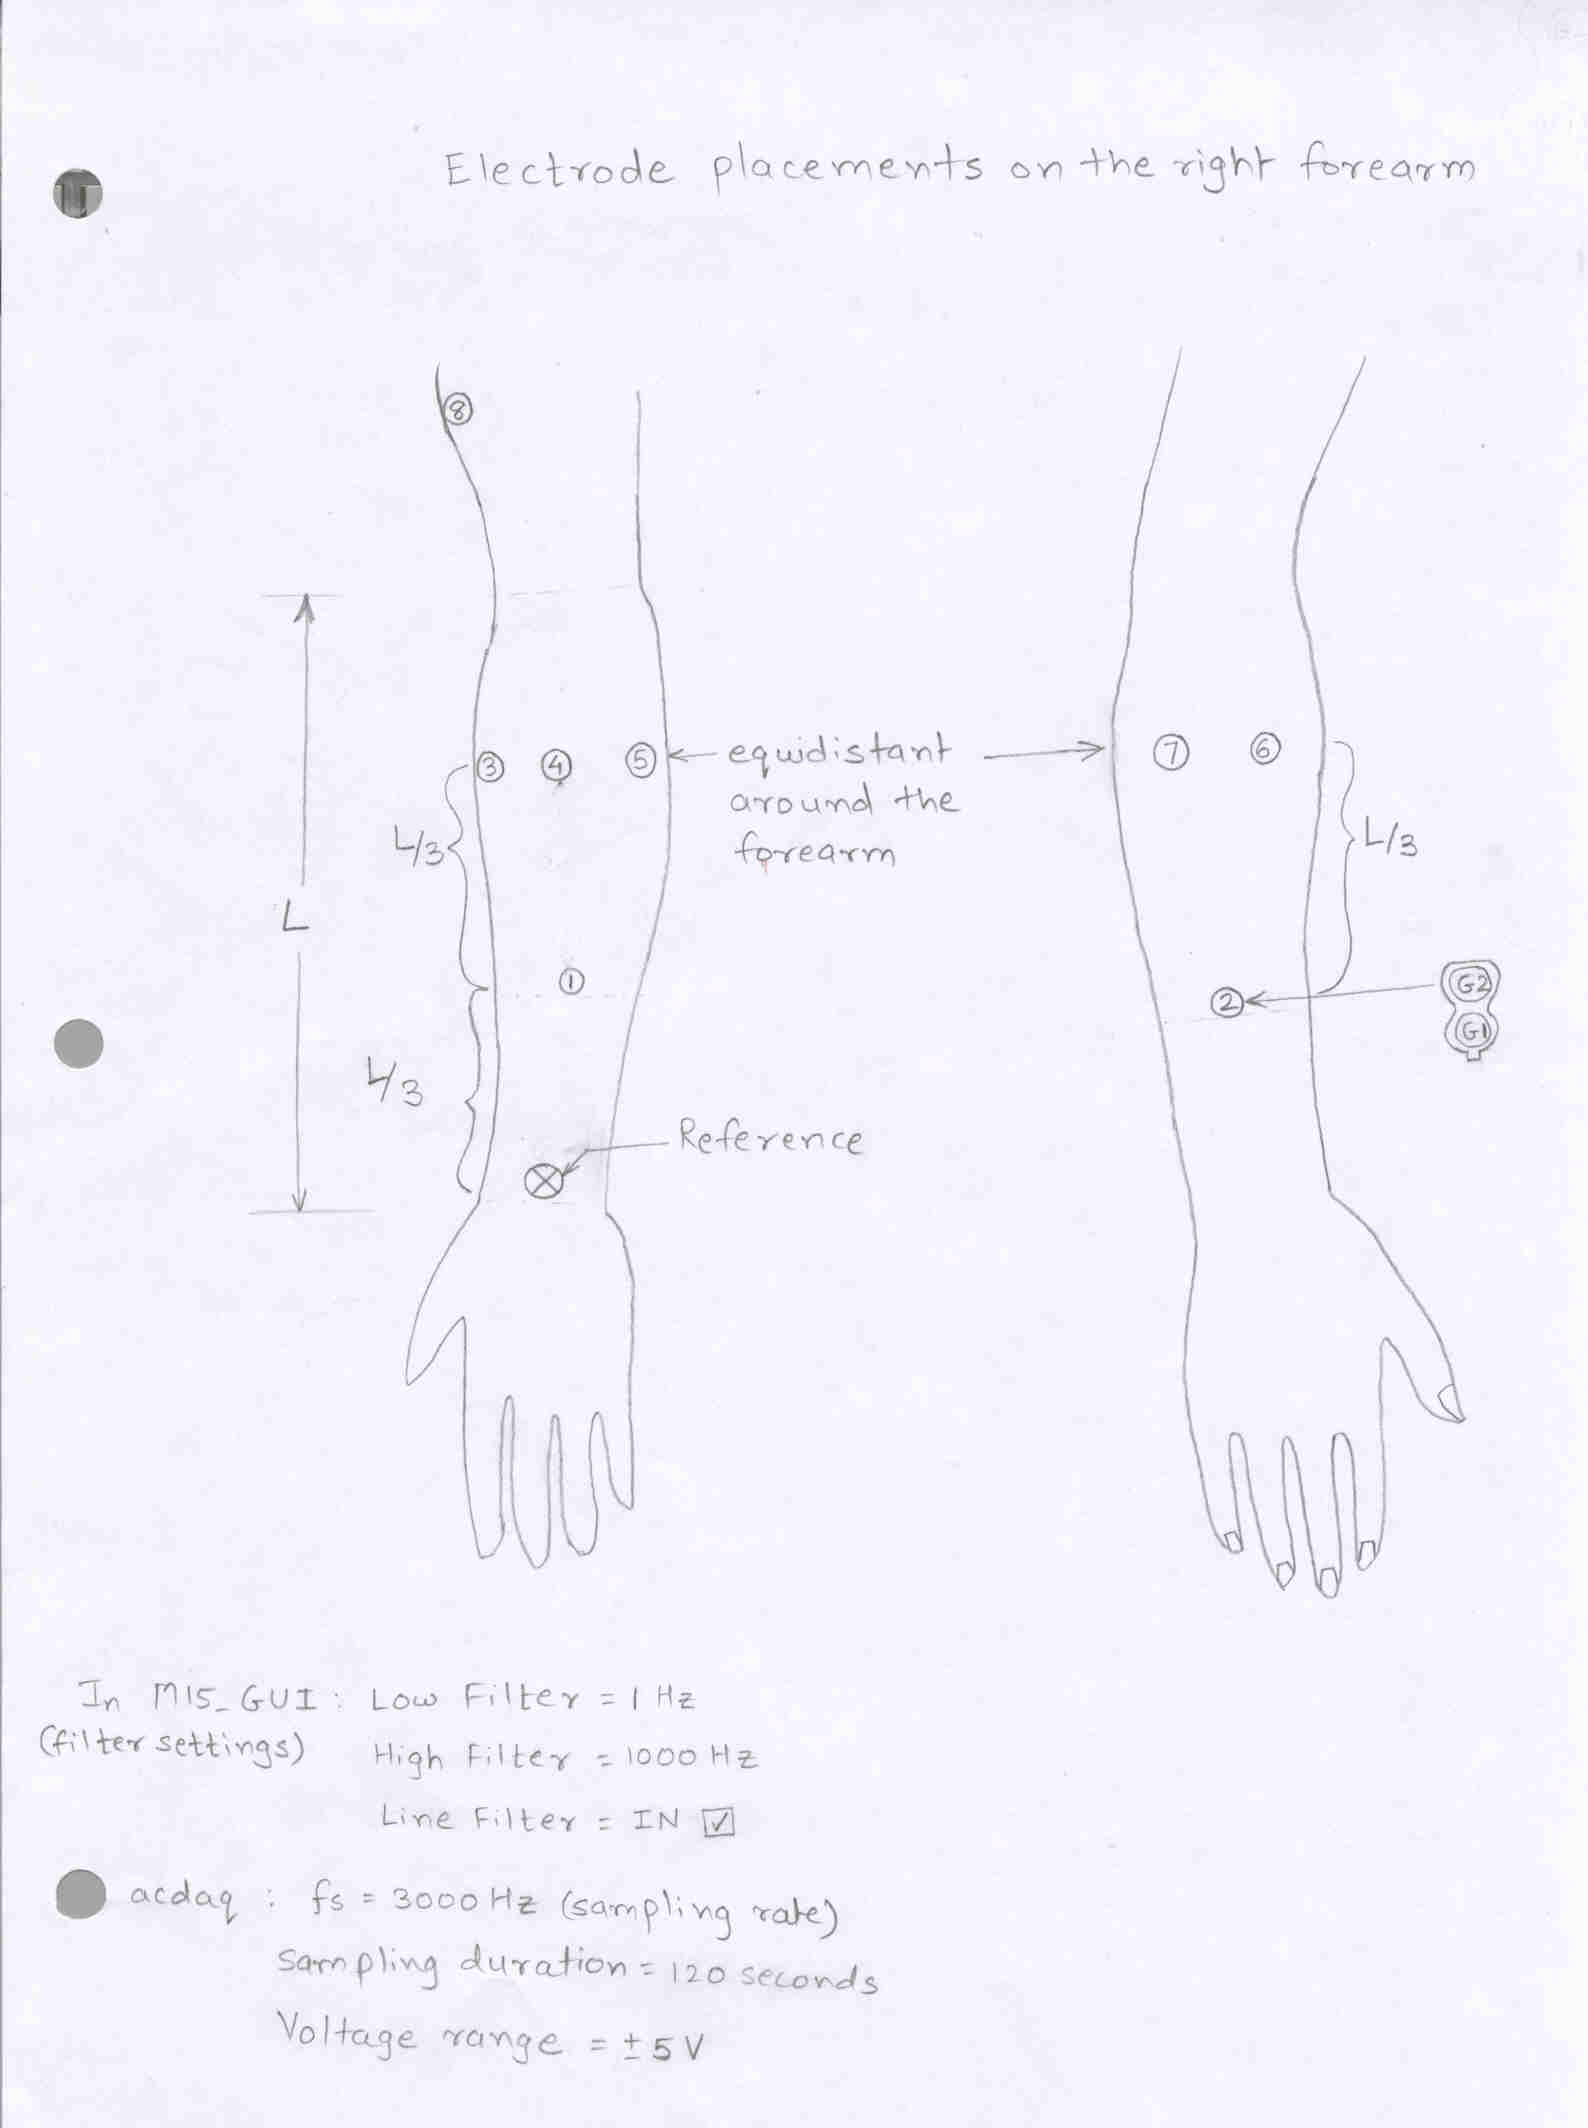 Electrode placements on the right forearm
8
3
4
5
equidistant
around the
forearm
7
6
L/3
L/3
L
1
2
G2
G1
L/3
Reference
In M15_GUI : Low Filter = 1 Hz
(filter settings) High Filter = 1000 Hz
Line Filter = IN ☑
acdaq : fs = 3000 Hz (sampling rate)
sampling duration = 120 seconds
Voltage range = ± 5 V